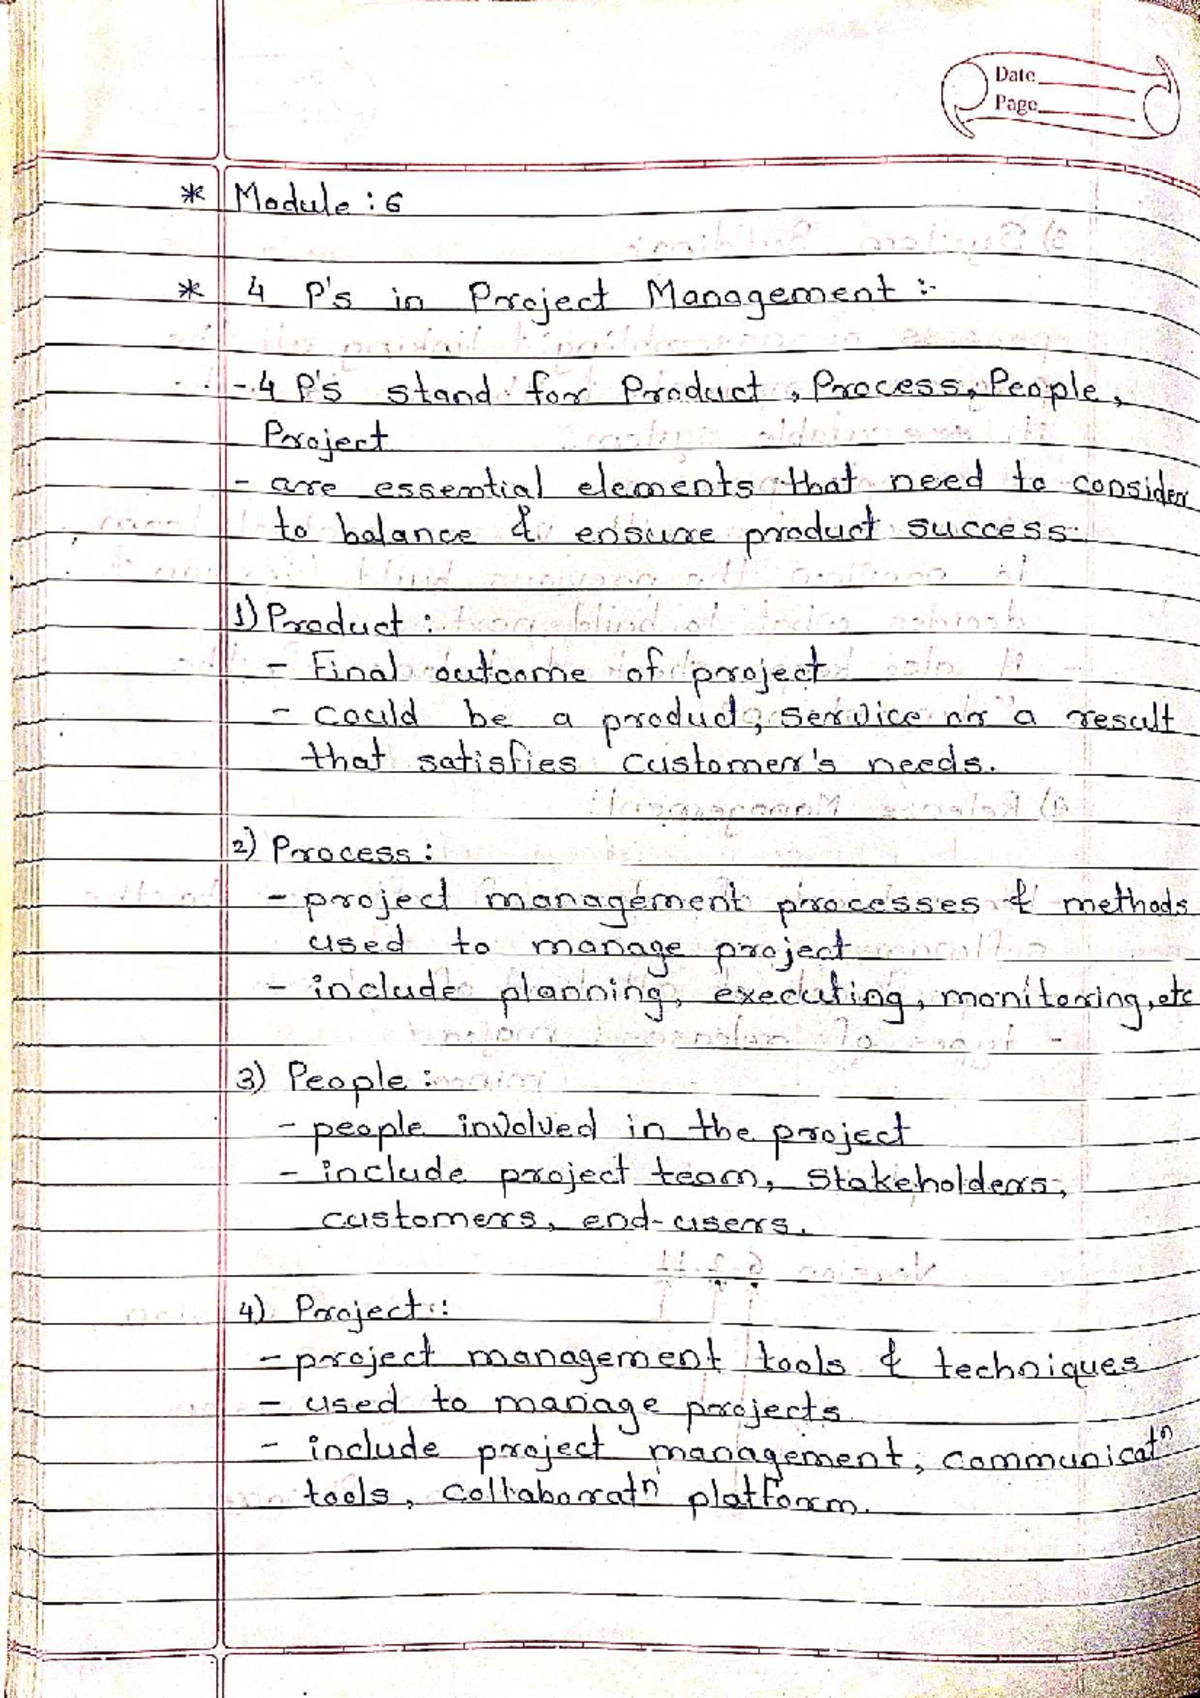 Date
Page
* Module : 6
* 4 P's in Project Management :-
- 4 P's stand for Product, Process, People,
Project
- are essential elements that need to consider
to balance & ensure product success.
1) Product :
- Final outcome of project
- could be a product, service or a result
that satisfies customer's needs.
2) Process :
- project management processes & methods
used to manage project
- include planning, executing, monitoring, etc
3) People :
- people involved in the project
- include project team, stakeholders,
customers, end-users.
4) Project :
- project management tools & techniques
- used to manage projects.
- include project management, communicatn
tools, collaboratn platform.